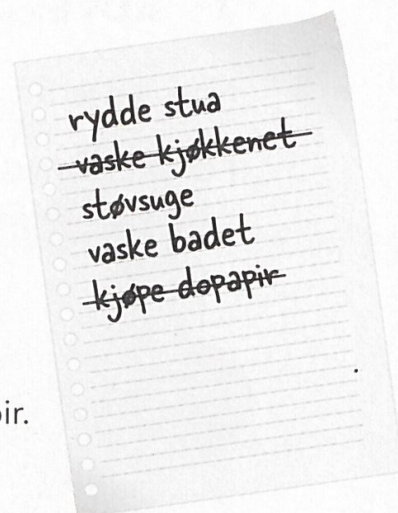 rydde stua
vaske kjøkkenet
støvsuge
vaske badet
kjøpe dopapir